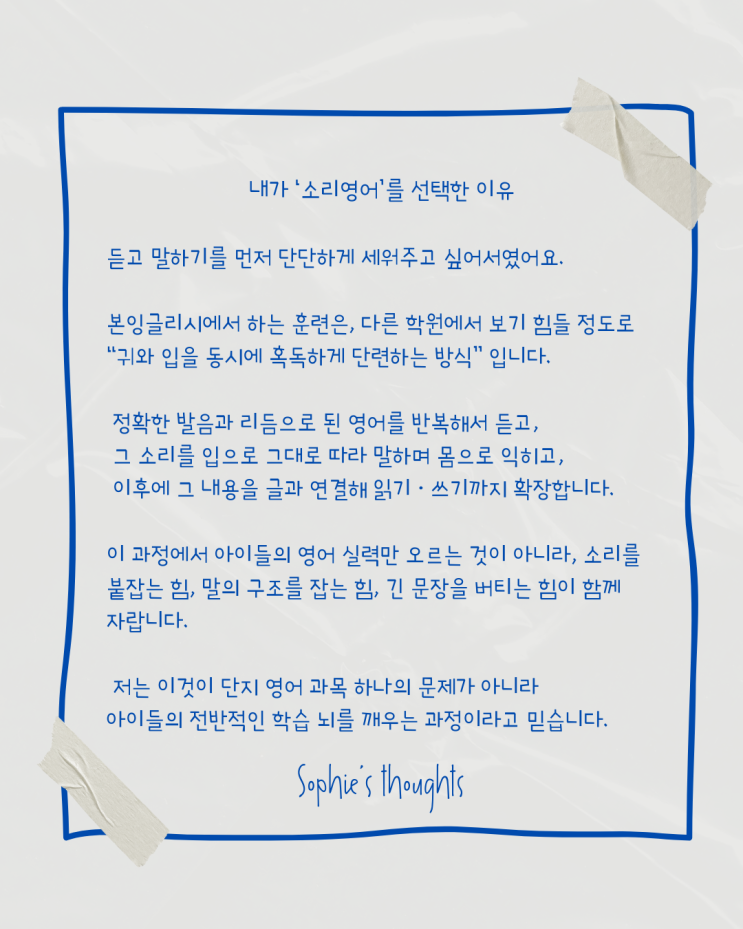 내가 ‘소리영어’를 선택한 이유
듣고 말하기를 먼저 단단하게 세워주고 싶어서였어요.
본잉글리시에서 하는 훈련은, 다른 학원에서 보기 힘들 정도로
“귀와 입을 동시에 혹독하게 단련하는 방식” 입니다.
정확한 발음과 리듬으로 된 영어를 반복해서 듣고,
그 소리를 입으로 그대로 따라 말하며 몸으로 익히고,
이후에 그 내용을 글과 연결해 읽기 · 쓰기까지 확장합니다.
이 과정에서 아이들의 영어 실력만 오르는 것이 아니라, 소리를
붙잡는 힘, 말의 구조를 잡는 힘, 긴 문장을 버티는 힘이 함께
자랍니다.
저는 이것이 단지 영어 과목 하나의 문제가 아니라
아이들의 전반적인 학습 뇌를 깨우는 과정이라고 믿습니다.
Sophie's thoughts